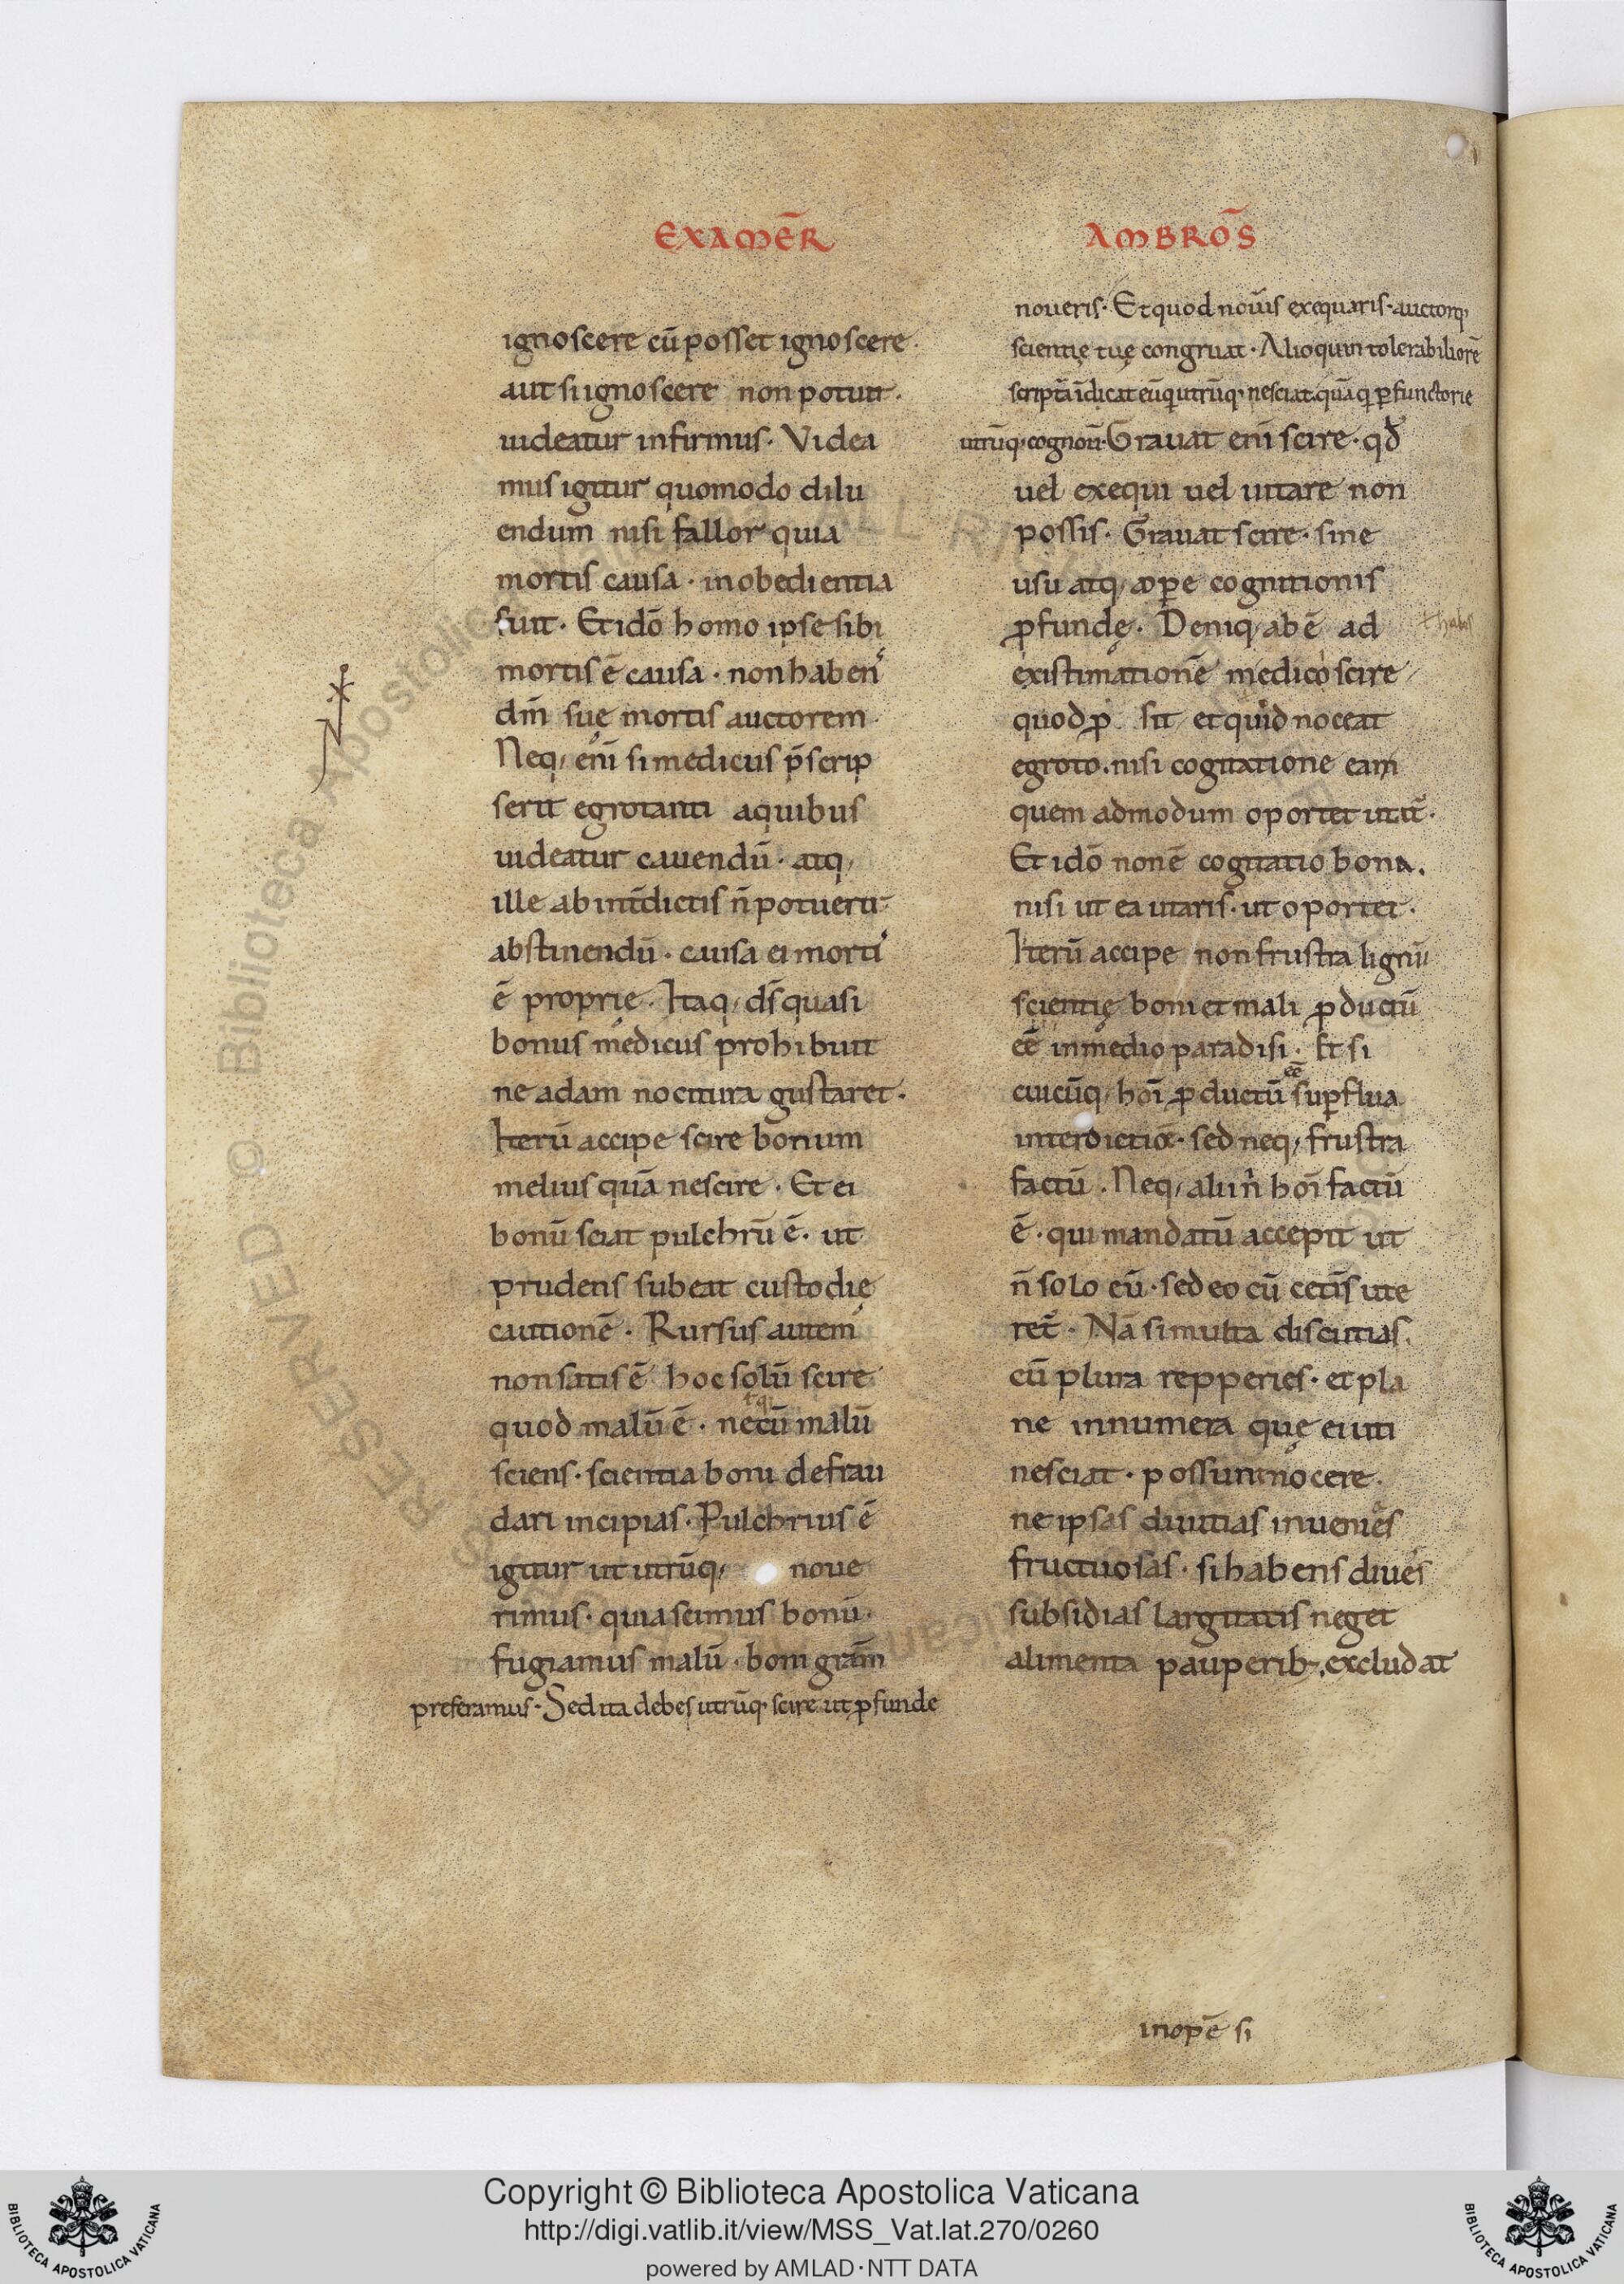 EXAMER̄
ignoscere cū posset ignoscere.
aut si ignoscere non potuit.
uideatur infirmus. Videa
mus igitur quomodo dilu
endum nisi fallor quia
mortis causa. inobedientia
fuit. Et idō homo ipse sibi
mortis ē causa. non haben̾
dm̄ suę mortis auctorem.
Neq; enī si medicus p̄scrip
serit egrotanti a quibus
uideatur cauendū. atq;
ille ab int̄dictis n̄ potuerit
abstinendū. causa ei morti᾽
ē proprię. Itaq; ds̄ quasi
bonus medicus prohibuit
ne adam nocitura gustaret.
Iterū accipe scire bonum
melius quā nescire. Et ei
bonū sciat pulchrū ē. ut
prudens subeat custodię
cautionē. Rursus autem
non satis ē hoc solū scire
quod malū ē. necū malū
sciens. scientia boni defrau
dari incipias. Pulchrius ē
igitur ut utrūq; noue
rimus. quia scimus bonū.
fugiamus malū. boni grām
preferamus. Sed ita debes utrūq; scire ut ꝓfunde
AMBRŌS
noueris. Et quod nou̾is exequaris. auctorq;
scientię tuę congruat. Alioquin tolerabiliorē
scriptā īdicat eū qui utrūq; nesciat. quā qi ꝑfunctorie
utrūq; cognou̾. Grauat enī scire. qd̄
uel exequi uel uitare non
possis. Grauat scire. sine
usu atq; oꝑe cognitionis
ꝓfundę. Deniq; ab ē ad
existimationē medico scire
quod ꝓ sit et quid noceat
egroto. nisi cogitatione eam
quem admodum oportet utit̾.
Et idō non ē cogitatio bona.
nisi ut ea utaris. ut oportet.
Iterū accipe non frustra lignū
scientię boni et mali ꝓductū
eē in medio paradisi. Et si
eē
cuicūq; hoī ꝓductū suꝑflua
interdictio. sed neq; frustra
factū. Neq; alii n̄ hoī factū
ē. qui mandatū accepit ut
n̄ solo eū. sed eo cū cet̄is ute
ret̾. Nā si multa discutias.
cū plura repperies. et pla
ne innumera quę ei uti
nesciat. possunt nocere.
ne ipsas diuitias inuenies
fructuosas. si habens diues
subsidias largitatis neget
alimenta pauperib; excludat
inopē si
Copyright © Biblioteca Apostolica Vaticana
http://digi.vatlib.it/view/MSS_Vat.lat.270/0260
powered by AMLAD·NTT DATA
BIBLIOTECA APOSTOLICA VATICANA
BIBLIOTECA APOSTOLICA VATICANA